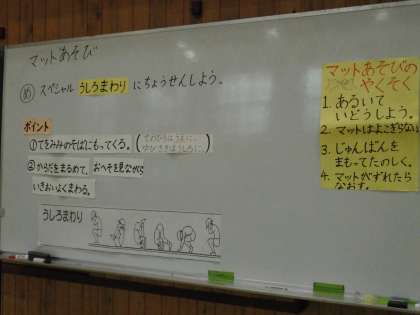 マットあそび
め スペシャル うしろまわり にちょうせんしよう。
ポイント
①てをみみのそばにもってくる。
②からだをまるめて、おへそを見ながら
いきおいよくまわる。
うしろまわり
マットあそびの
やくそく
1. あるいて
いどうしよう。
2. マットはよこぎらない
3. じゅんばんを
まもってたのしく。
4. マットがずれたら
なおす。